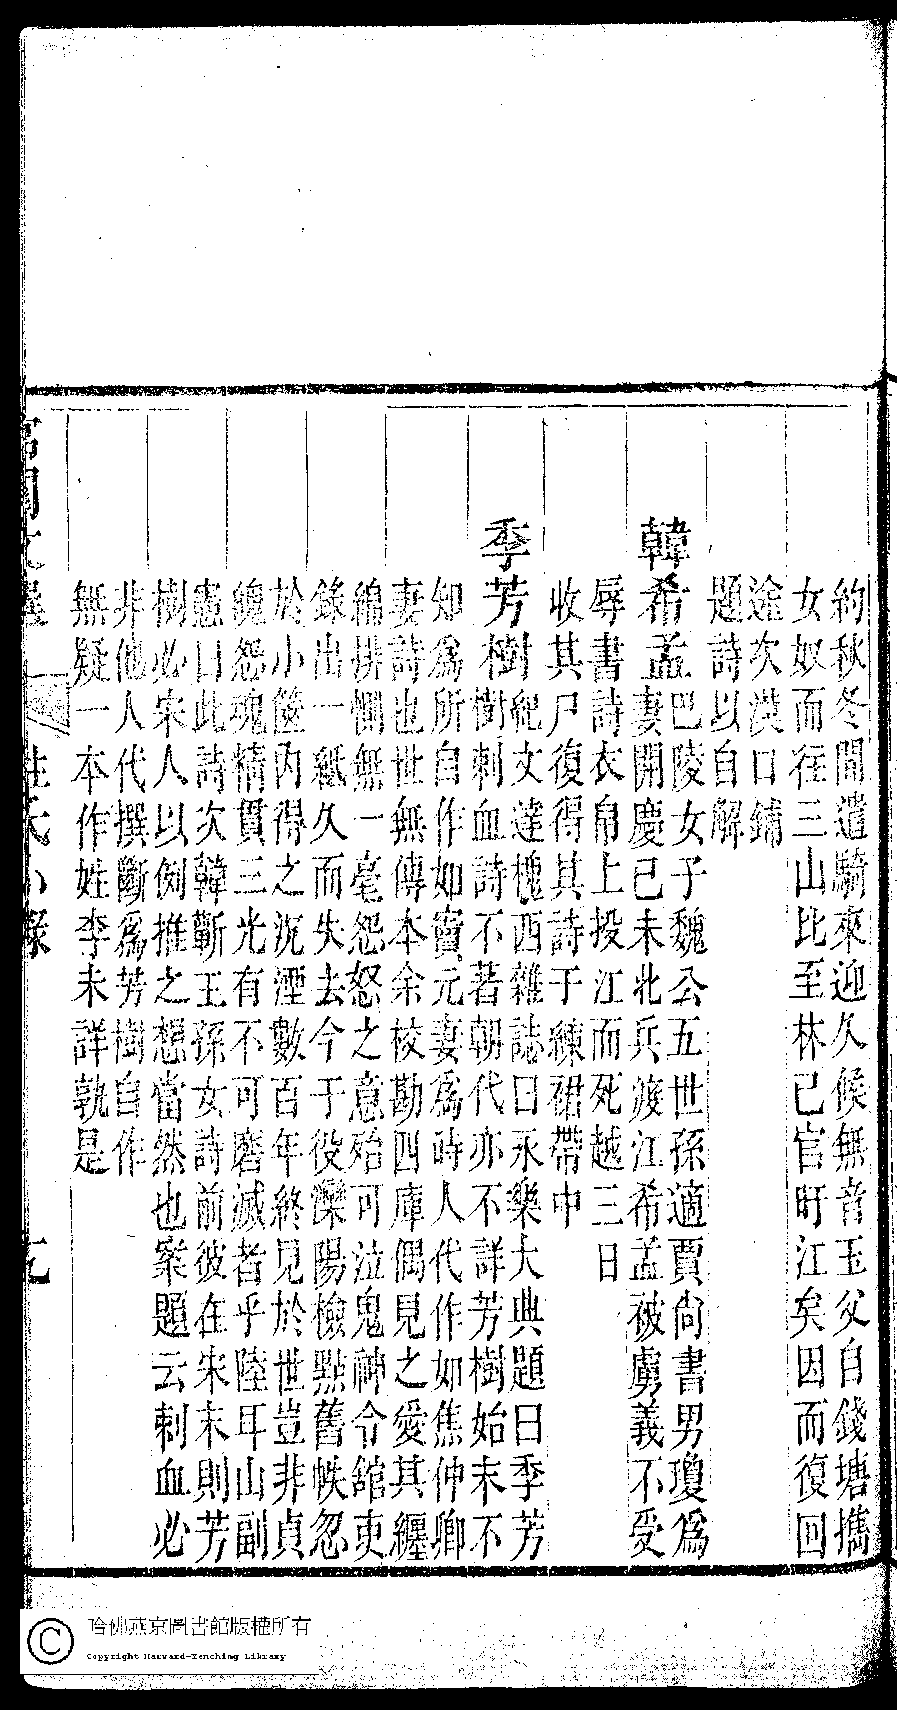 約秋冬間遣騎來迎久候無音玉父自錢塘擕
女奴而往三山比至林已官盱江矣因而復回
途次漠口鋪
題詩以自解
韓希孟
巴陵女子魏公五世孫適賈尚書男瓊爲
妻開慶己未北兵渡江希孟被虜義不受
辱書詩衣帛上投江而死越三日
收其尸復得其詩于練裙帶中
季芳樹
紀文達槐西雜誌曰永樂大典題曰季芳
樹刺血詩不著朝代亦不詳芳樹始末不
知爲所自作如竇元妻爲時人代作如焦仲卿
妻詩也世無傳本余校勘四庫偶見之愛其纏
綿排惻無一毫怨怒之意殆可泣鬼神令舘吏
錄出一紙久而失去今于役灤陽檢點舊帙忽
於小篋內得之沉湮數百年終見於世豈非貞
魂怨魄精貫三光有不可磨滅者乎陸耳山副
憲曰此詩次韓蘄王孫女詩前彼在宋末則芳
樹必宋人以例推之想當然也案題云刺血必
非他人代撰斷爲芳樹自作
無疑一本作姓李未詳孰是
宮閨文選
姓氏小錄
哈佛燕京圖書館版權所有
Copyright Harvard-Yenching Library